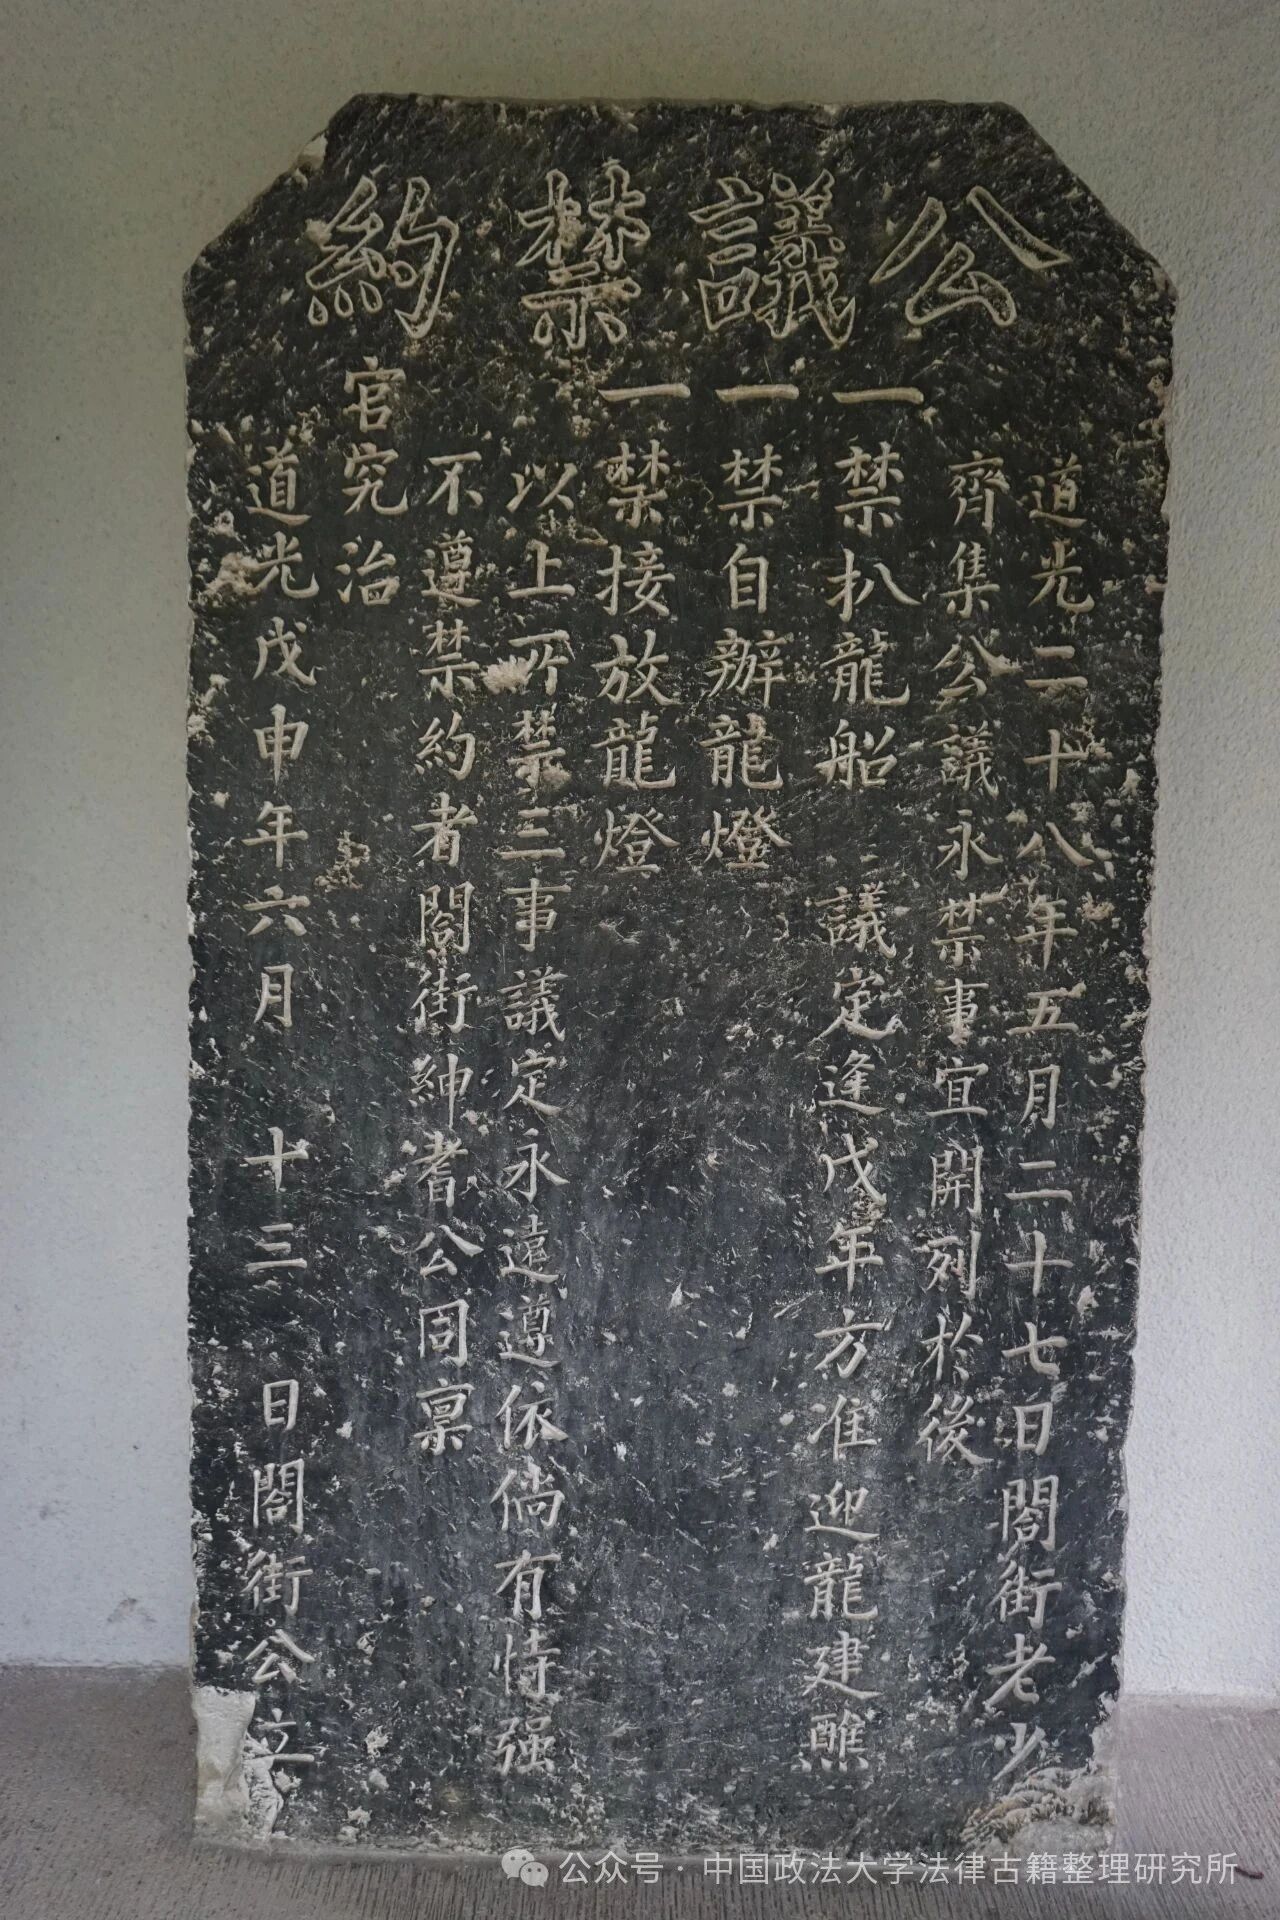 公議禁約
道光二十八年五月二十七日閤街老少
齊集公議永禁事宜開列於後
一禁扒龍船 議定逢戊年方准迎龍建醮
一禁自辦龍燈
一禁接放龍燈
以上所禁三事議定永遠遵依倘有恃强
不遵禁約者閤街紳耆公同稟
官究治
道光戊申年六月 十三 日閤街公立
公众号·中国政法大学法律古籍整理研究所